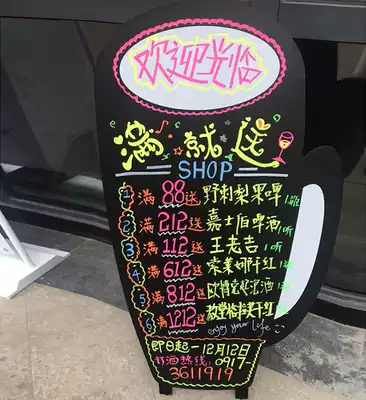 欢迎光临
满就送
SHOP
1 满88送 野刺梨果啤 1罐
2 满212送 嘉士伯啤酒 1听
3 满112送 王老吉 1听
4 满612送 索莱娜干红 1
5 满812送 欧特堂起泡酒
6 满1212送 干红
enjoy your life
即日起-12月12日
订酒热线:0917-
3611919